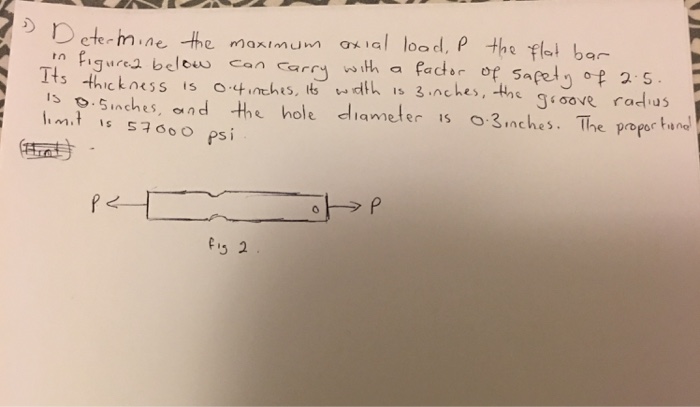 3) Determine the maximum axial load, P the flat bar
in figure 2 below can carry with a factor of safety of 2.5.
Its thickness is 0.4 inches, its width is 3 inches, the groove radius
is 0.5 inches, and the hole diameter is 0.3 inches. The proportional
limit is 57000 psi.
P P
fig 2.